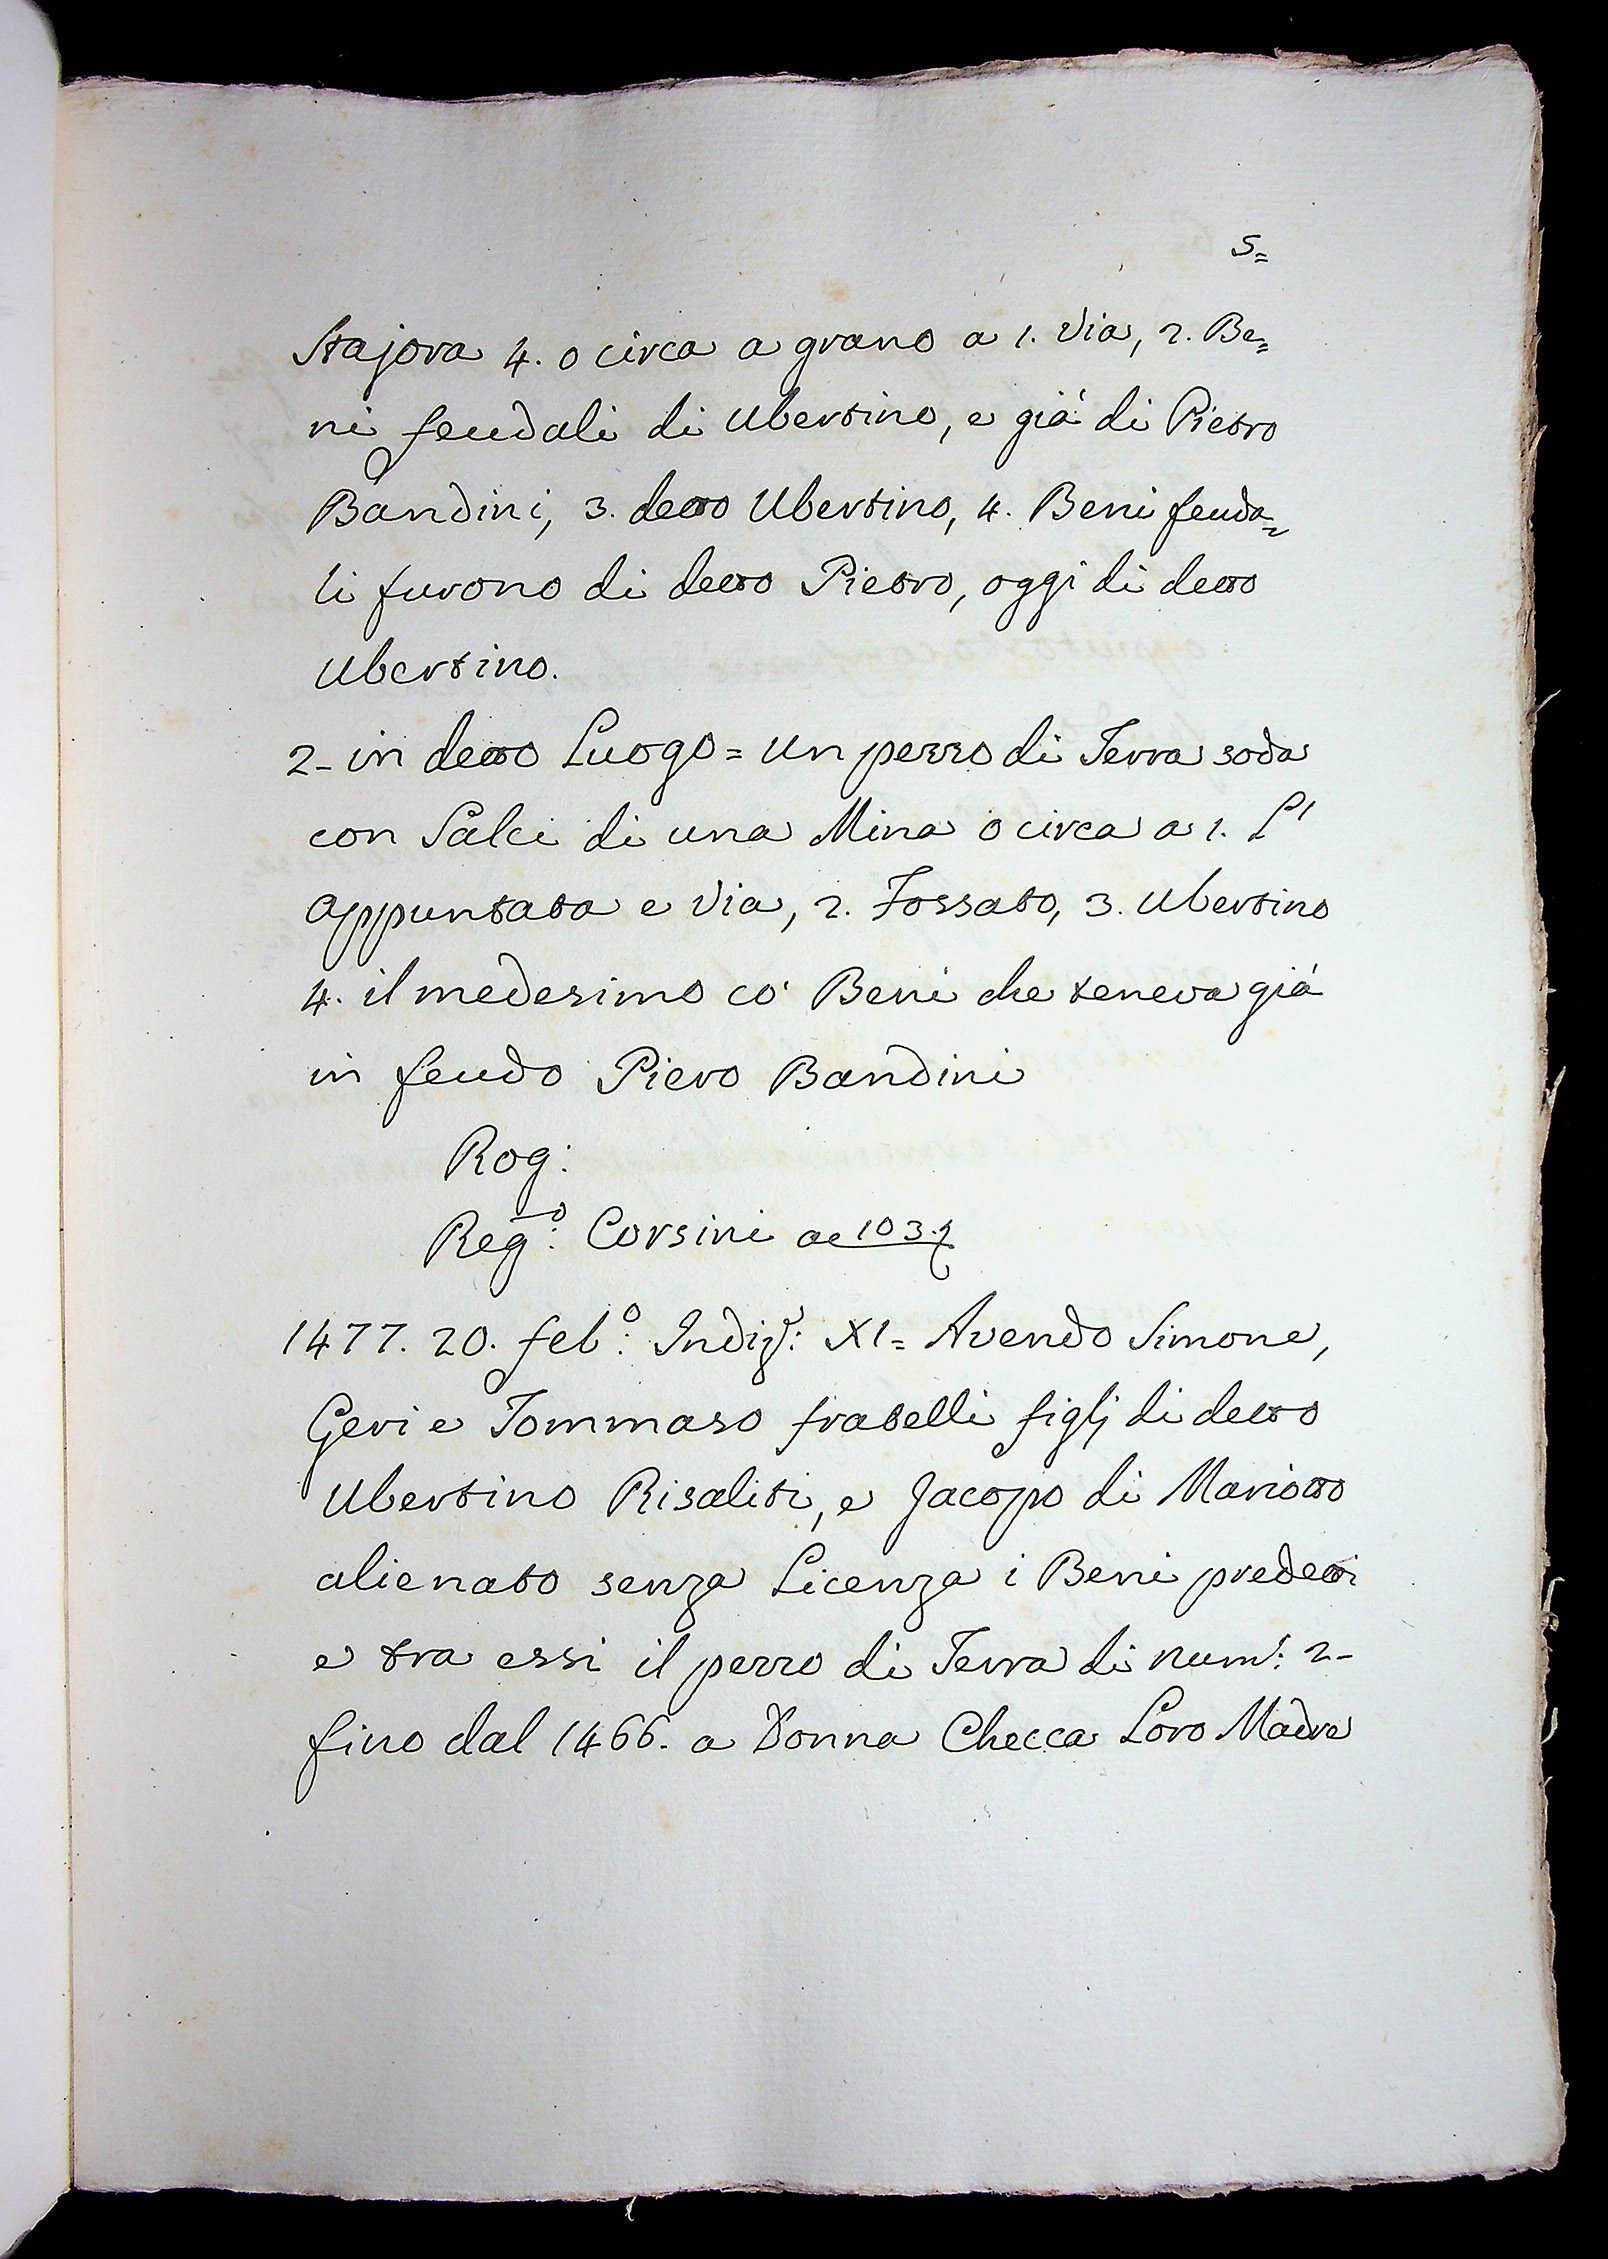 5=
Stajora 4. o circa a grano a 1. Via, 2. Be=
ni feudali di Ubertino, e già di Pietro
Bandini, 3. detto Ubertino, 4. Beni feuda=
li furono di detto Pietro, oggi di detto
Ubertino.
2- in detto Luogo = un pezzo di Terra soda
con Salci di una Mina o circa a 1. L'
appuntata e Via, 2. Fossato, 3. Ubertino
4. il medesimo co' Beni che teneva già
in feudo Piero Bandini
Rog:
Reg:º Corsini ac 103.
1477. 20. feb:º Indiz: XI= Avendo Simone,
Geri e Tommaso fratelli figlj di detto
Ubertino Risaliti, e Jacopo di Mariotto
alienato senza Licenza i Beni predetti
e tra essi il pezzo di Terra di num: 2-
fino dal 1466. a Donna Checca Loro Madre